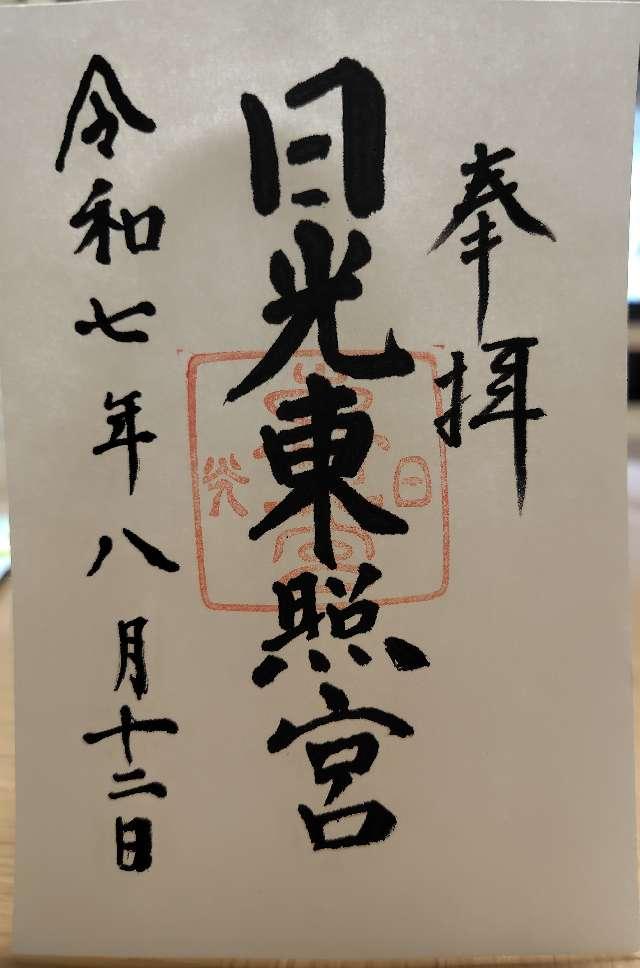 奉拝
日光東照宮
令和七年八月十二日